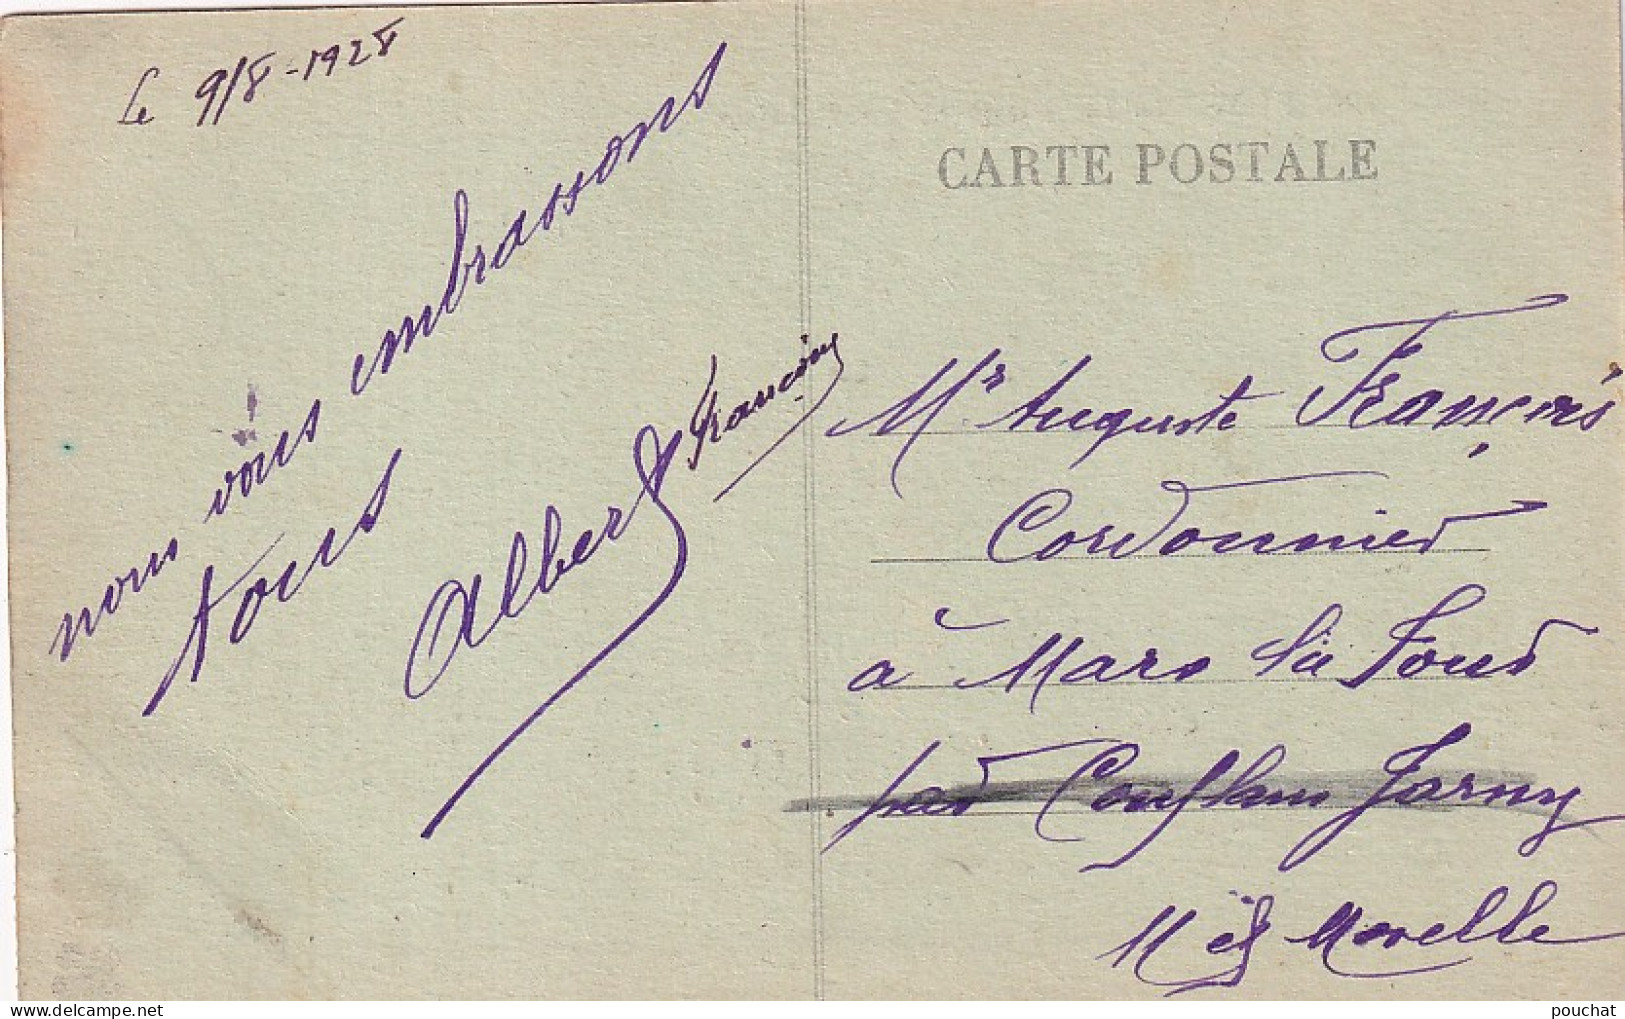 Le 9/8-1928
nous vous embrassons
tous
Albert François
CARTE POSTALE
Mr Auguste François
Cordonnier
à Mars la Tour
par Conflans Jarny
M et Moselle
pouchat